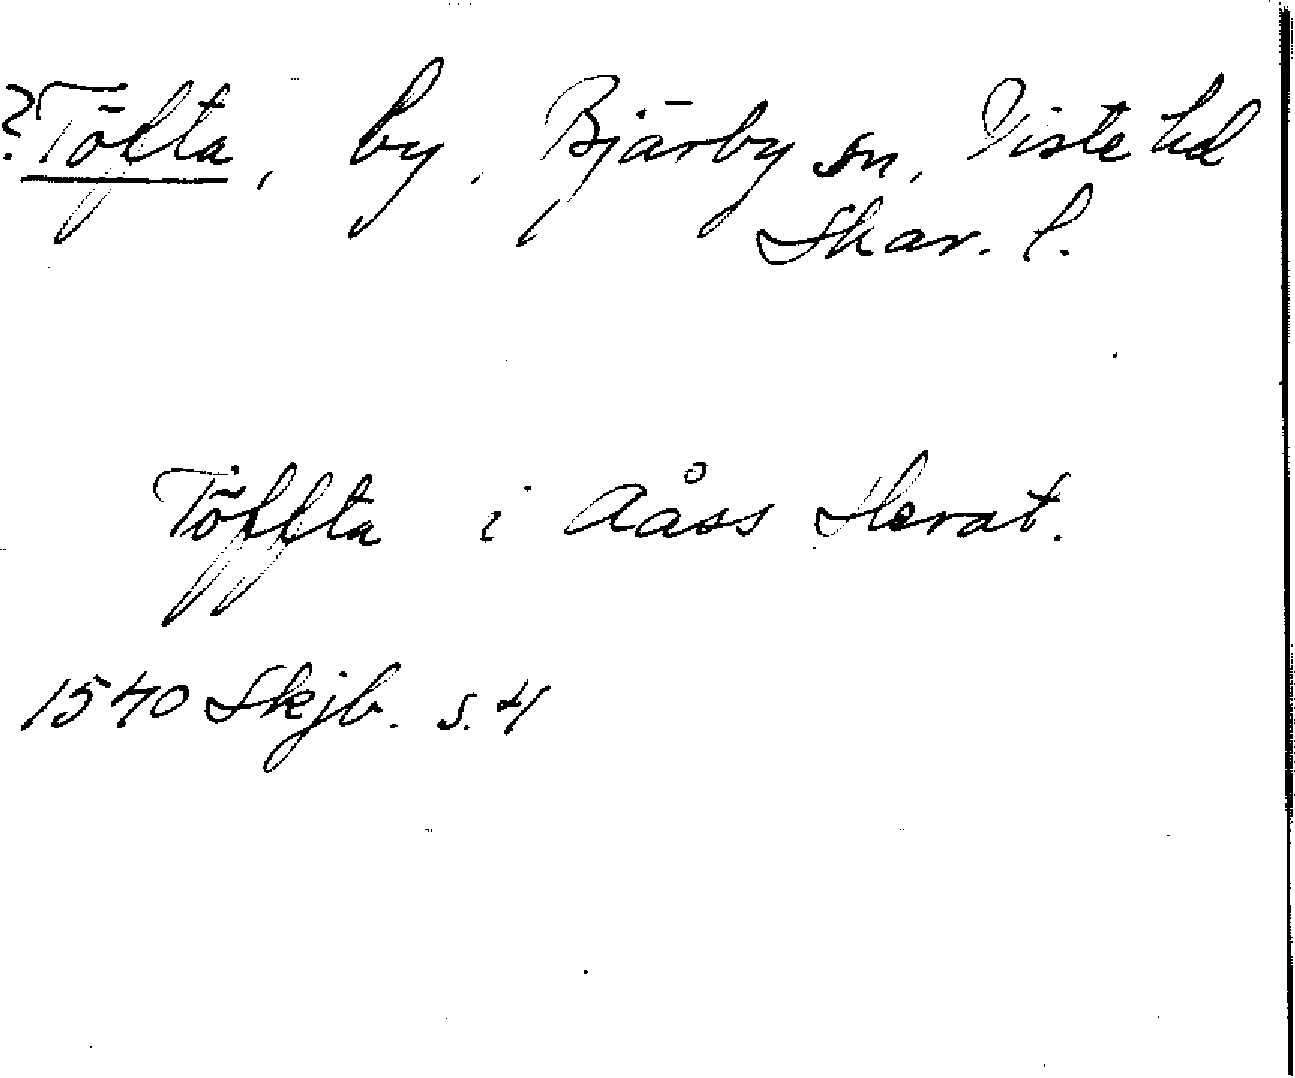 ?Töfta, by, Bjärby sn, Viste hd
Skar. l.
Töffta i Aåss Herat.
1540 Skjb. s. 4